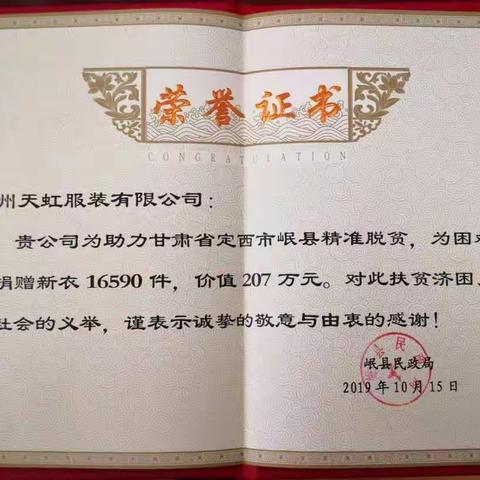 荣誉证书
CONGRATULATION
州天虹服装有限公司：
贵公司为助力甘肃省定西市岷县精准脱贫，为困
捐赠新衣 16590 件，价值 207 万元。对此扶贫济困
社会的义举，谨表示诚挚的敬意与由衷的感谢！
岷县民政局
2019 年 10 月 15 日